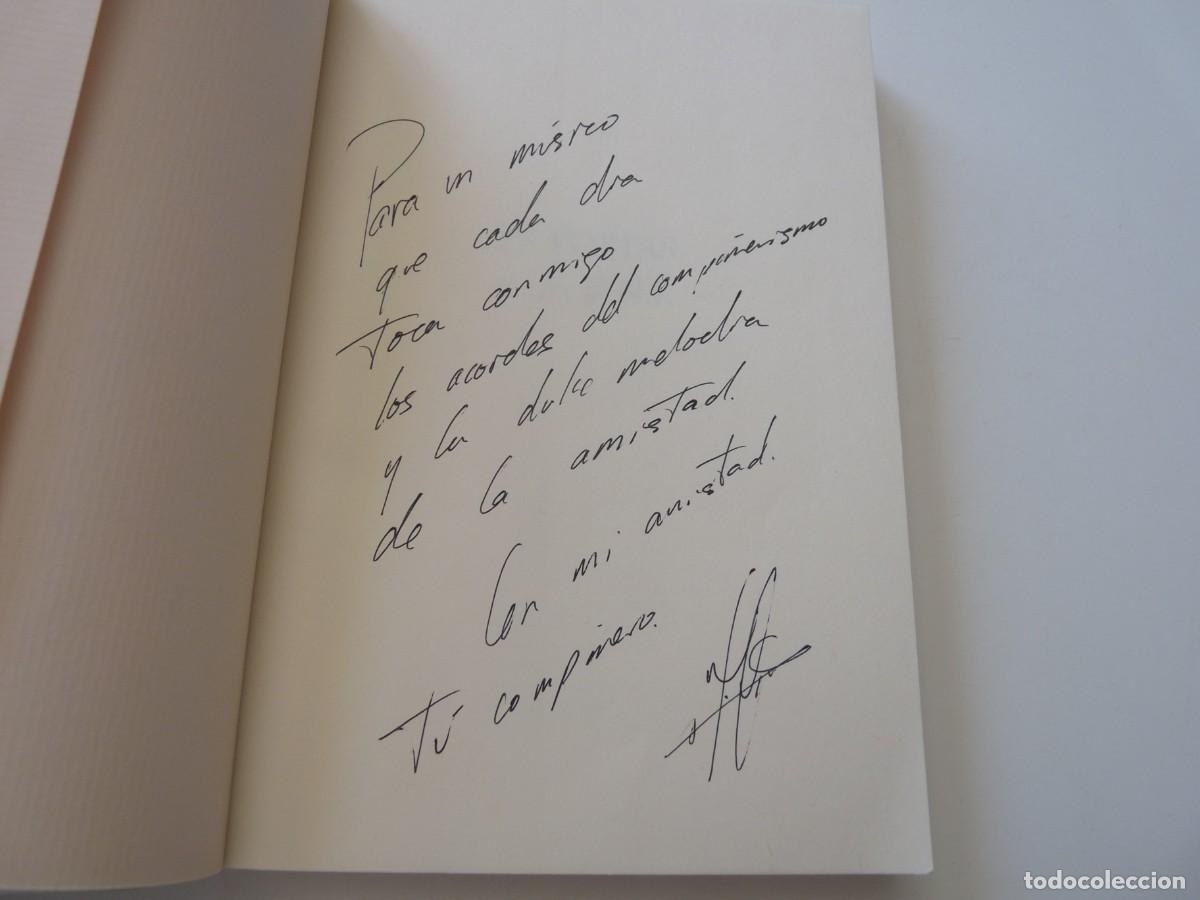 Para un músico
que cada día
toca conmigo
los acordes del compañerismo
y la dulce melodía
de la amistad.
Con mi amistad.
Tú compañero.
todocoleccion